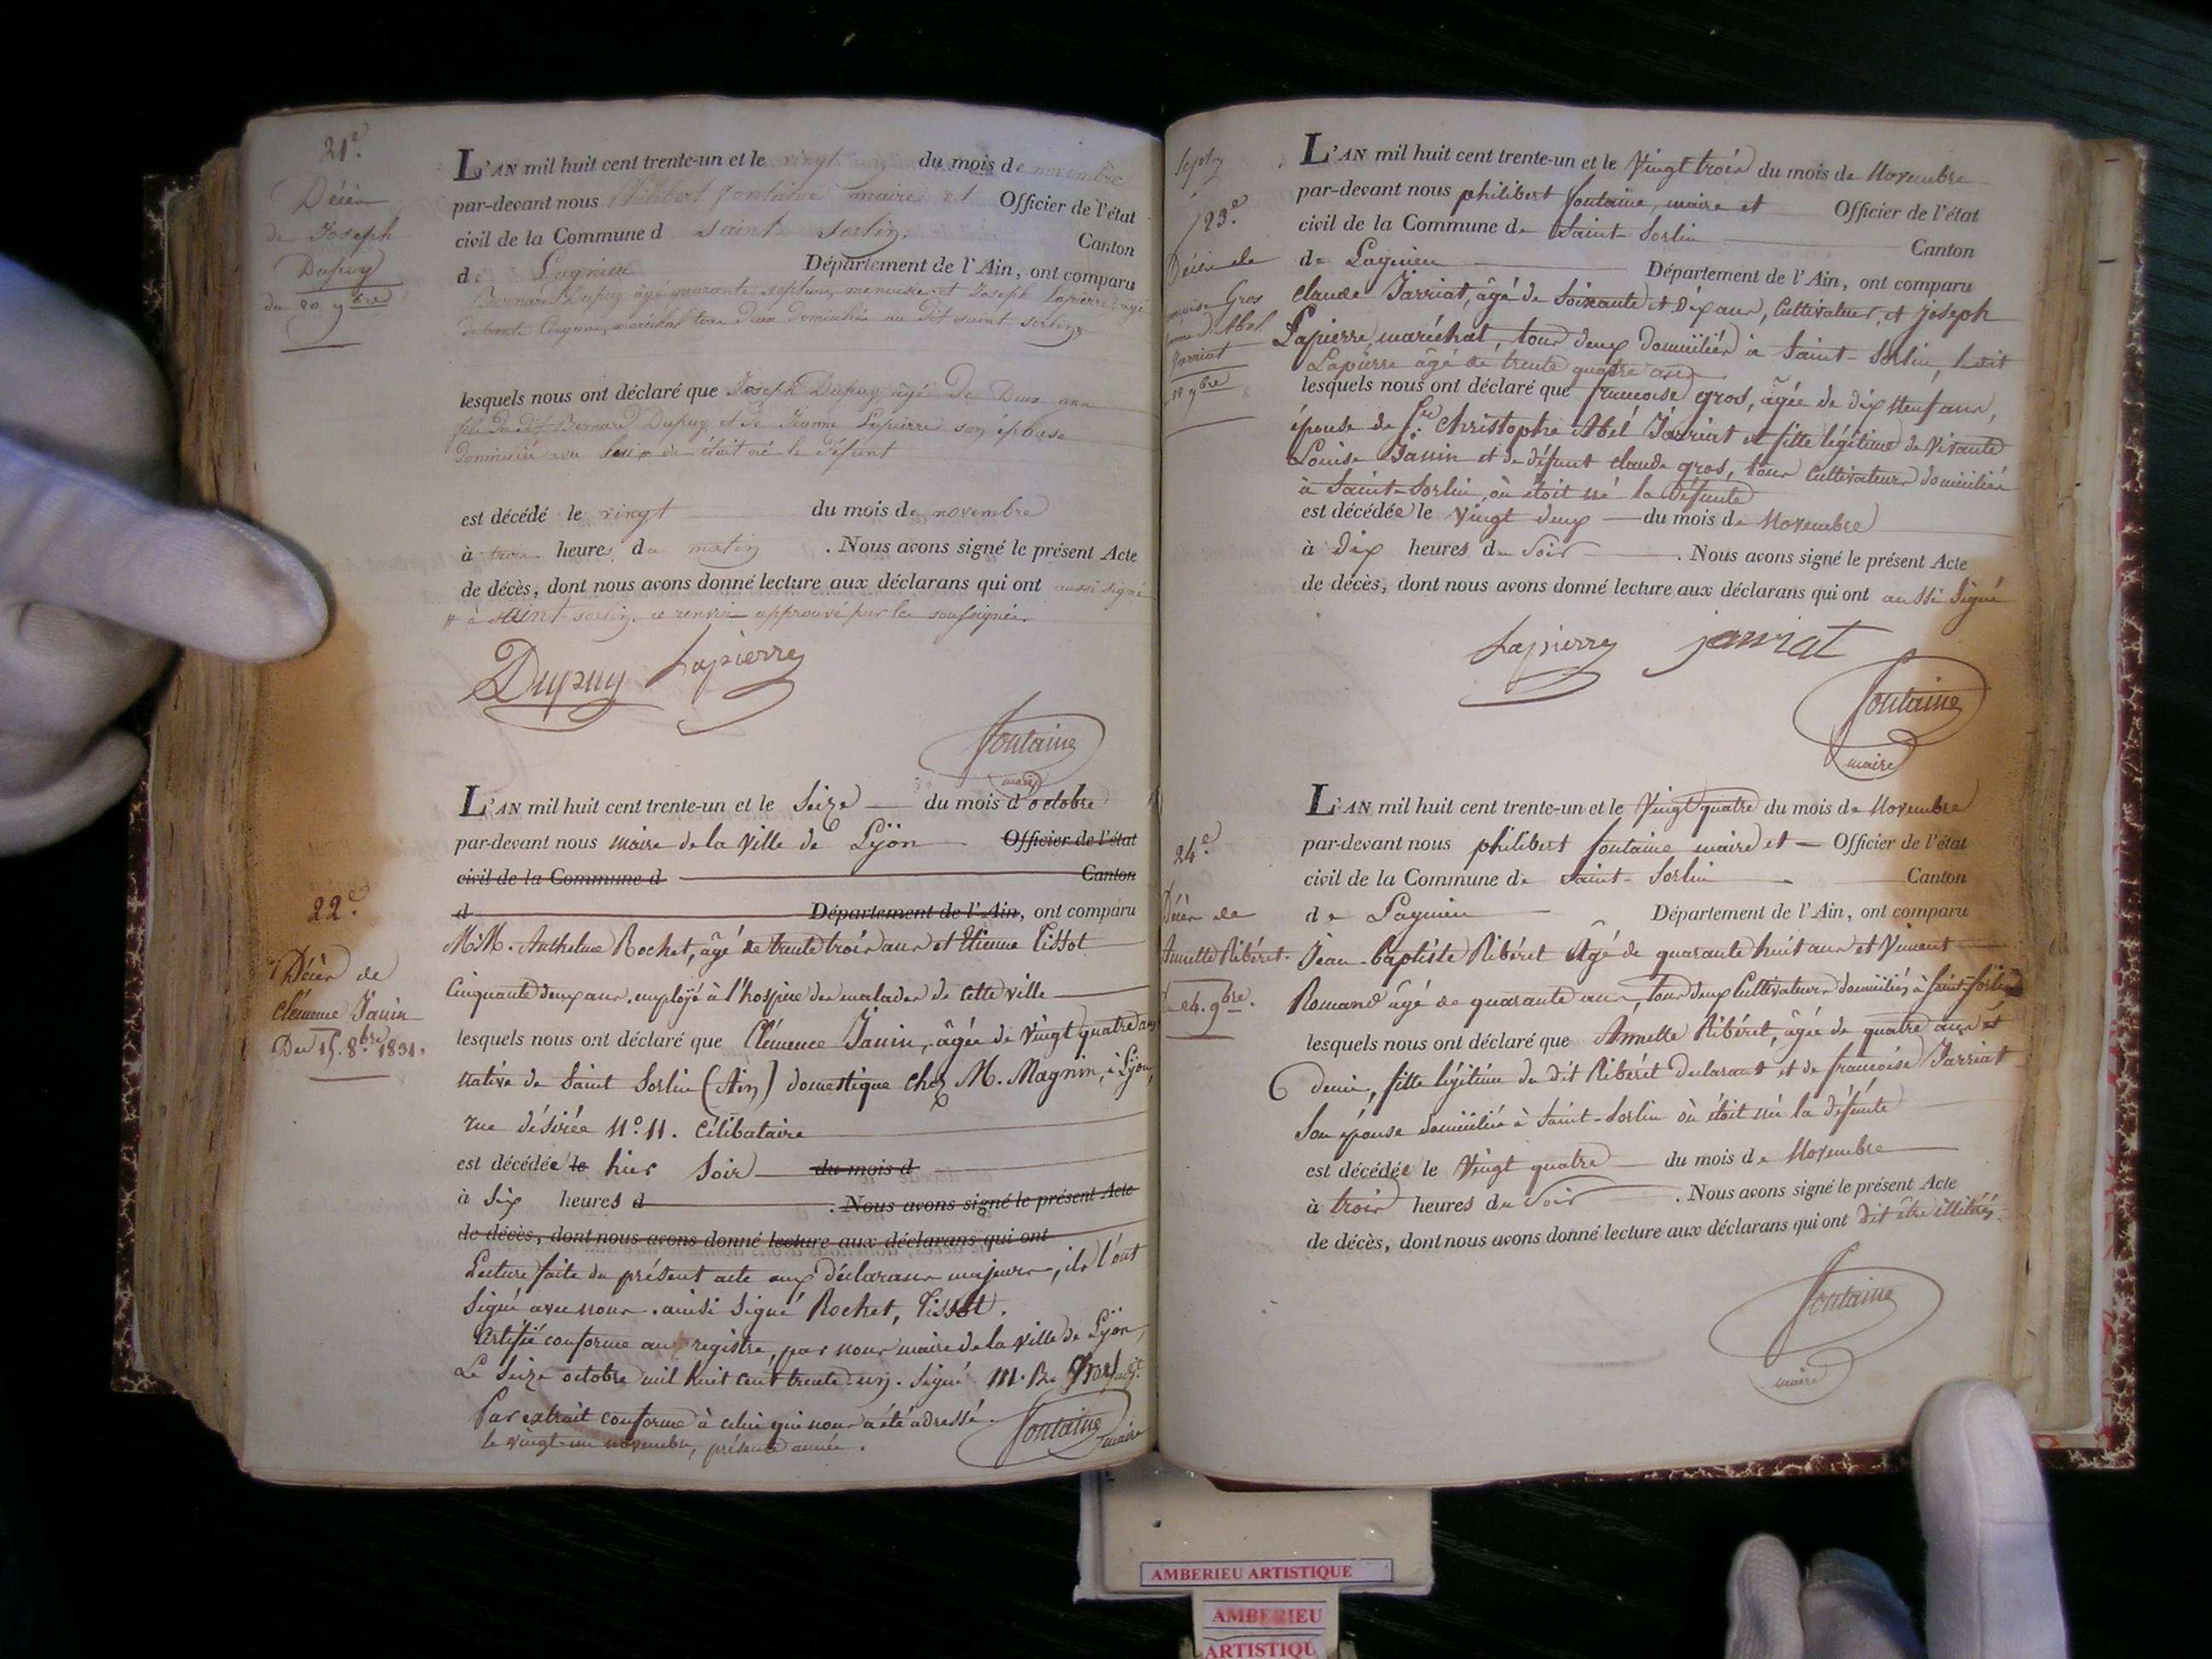 21e.
Décès
de Joseph
Dupuy
du 20 9bre
L'AN mil huit cent trente-un et le vingt du mois de novembre
par-devant nous Philibert fontaine maire et Officier de l'état
civil de la Commune d saint sorlin. Canton
de Lagnieu Département de l'Ain, ont comparu
Bernard Dupuy âgé quarante sept ans, menuisier et Joseph Lapierre, agé
de trente cinq ans, maréchal tous deux domiciliés au dit saint sorlin
lesquels nous ont déclaré que Joseph Dupuy âgé de Deux ans
fils du dit Bernard Dupuy et de Jeanne Lapierre son épouse
domiciliée avec lui # où était né le défunt
est décédé le vingt du mois de novembre
à trois heures du matin . Nous avons signé le présent Acte
de décès, dont nous avons donné lecture aux déclarans qui ont aussi signé
# à saint sorlin. ce renvoi approuvé par les soussignés.
Dupuy Lapierre
fontaine
maire
22e.
Décès de
Clémence Janin
Du 15. 8bre 1831.
L'AN mil huit cent trente-un et le Seize du mois d'octobre
par-devant nous maire de la ville de Lÿon Officier de l'état
civil de la Commune d Canton
d Département de l'Ain, ont comparu
M.M. Anthelme Rochet, âgé de trente trois ans et Etienne Tissot
Cinquante deux ans, employé à l'hospice des malades de cette ville
lesquels nous ont déclaré que Clémence Janin, âgée de vingt quatre ans
native de Saint Sorlin (Ain) domestique chez M. Magnin, à Lÿon,
rue désirée N°. 11. célibataire
est décédée le hier Soir du mois d
à Six heures d . Nous avons signé le présent Acte
de décès, dont nous avons donné lecture aux déclarans qui ont
Lecture faite du présent acte aux déclarans majeurs, ils l'ont
signé avec nous. ainsi signé Rochet, Tissot.
Certifié conforme au registre, par nous maire de la ville de Lÿon,
Le Seize octobre mil huit cent trente-un. Signé
Par extrait conforme à celui qui nous a été adressé
le vingt-un novembre, présente année.
fontaine
maire
Septe
23e.
Décès de
Gros
Abel
Jarriat
22 9bre
L'AN mil huit cent trente-un et le Vingt trois du mois de Novembre
par-devant nous philibert fontaine, maire et Officier de l'état
civil de la Commune de Saint-Sorlin Canton
de Lagnieu Département de l'Ain, ont comparu
Claude Jarriat, âgé de Soixante et Dix ans, Cultivateur, et joseph
Lapierre, maréchal, tous deux domiciliés à Saint-Sorlin, ledit
Lapierre âgé de trente quatre ans
lesquels nous ont déclaré que francoise gros, âgée de dix neuf ans,
épouse de Sr. Christophe Abel Jarriat et fille légitime de vivante
Louise Janin et de défunt claude gros, tous Cultivateurs domiciliés
à Saint-Sorlin, où étoit né la Défunte
est décédée le vingt deux du mois de Novembre
à dix heures du Soir . Nous avons signé le présent Acte
de décès, dont nous avons donné lecture aux déclarans qui ont aussi Signé
Lapierre jarriat
fontaine
maire
24e.
Décès de
Annette Ribéret.
Du 24. 9bre.
L'AN mil huit cent trente-un et le Vingt quatre du mois de Novembre
par-devant nous philibert fontaine maire et Officier de l'état
civil de la Commune de Saint-Sorlin Canton
de Lagnieu Département de l'Ain, ont comparu
Jean-baptiste Ribéret âgé de quarante huit ans et Vincent
Romand âgé de quarante ans, tous deux Cultivateurs domiciliés à Saint-Sorlin
lesquels nous ont déclaré que Annette Ribéret, âgée de quatre ans et
demi, fille légitime du dit Ribéret déclarant et de francoise Jarriat
Son épouse domiciliés à Saint-Sorlin où étoit née la défunte
est décédée le Vingt quatre du mois de Novembre
à trois heures du Soir . Nous avons signé le présent Acte
de décès, dont nous avons donné lecture aux déclarans qui ont dit être illitérés
fontaine
maire
AMBERIEU ARTISTIQUE
AMBERIEU
ARTISTIQU